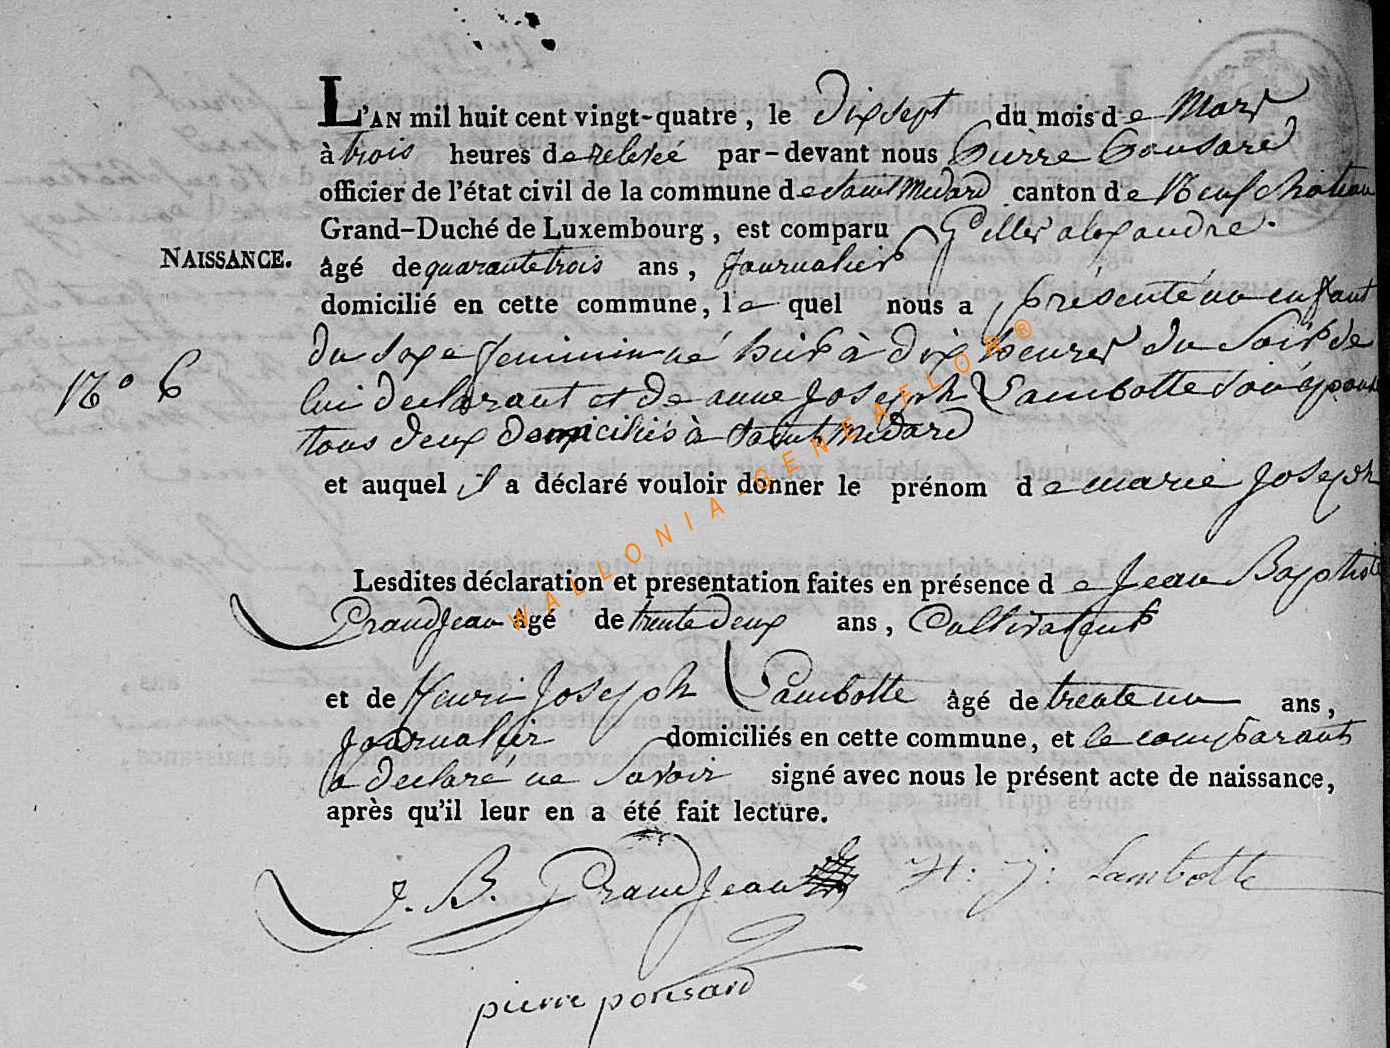 L'AN mil huit cent vingt-quatre, le dixsept du mois de Mars
à trois heures de relevé par-devant nous Pierre Ponsard
officier de l'état civil de la commune de Saint Medard canton de Neufchateau
Grand-Duché de Luxembourg, est comparu Gilles alexandre.
NAISSANCE.
âgé de quarante trois ans, Journalier
domicilié en cette commune, le quel nous a présenté un enfant
N° 6
du sexe feminin né hier à dix heures du Soir de
lui declarant et de anne Joseph Lambotte Son epouse
tous deux domiciliés à Saint Medard
et auquel il a déclaré vouloir donner le prénom de marie Joseph
Lesdites déclaration et presentation faites en présence de Jean Baptiste
Grandjean âgé de trente deux ans, Cultivateur
et de Henri Joseph Lambotte âgé de trente un ans,
Journalier domiciliés en cette commune, et le comparant
a declaré ne Savoir signé avec nous le présent acte de naissance,
après qu'il leur en a été fait lecture.
J. B. Grandjean H: J: Lambotte
pierre ponsard
WALLONIA-GENEAFLOR®